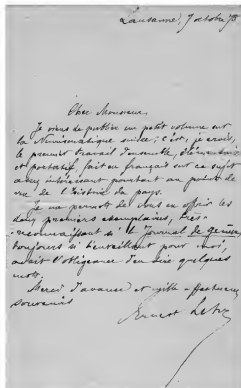 Lausanne, 7 octobre 78
Cher Monsieur,
Je viens de publier un petit volume sur
la Numismatique suisse; c'est, je crois,
le premier travail d'ensemble, élémentaire
et portatif, fait en français sur ce sujet
assez intéressant pourtant au point de
vue de l'histoire du pays.
Je me permets de vous en offrir les
deux premiers exemplaires, très
reconnaissant si le Journal de Genève
toujours si bienveillant pour moi,
avait l'obligeance d'en dire quelques
mots.
Merci d'avance et mille affectueux
souvenirs
Ernest Lehr